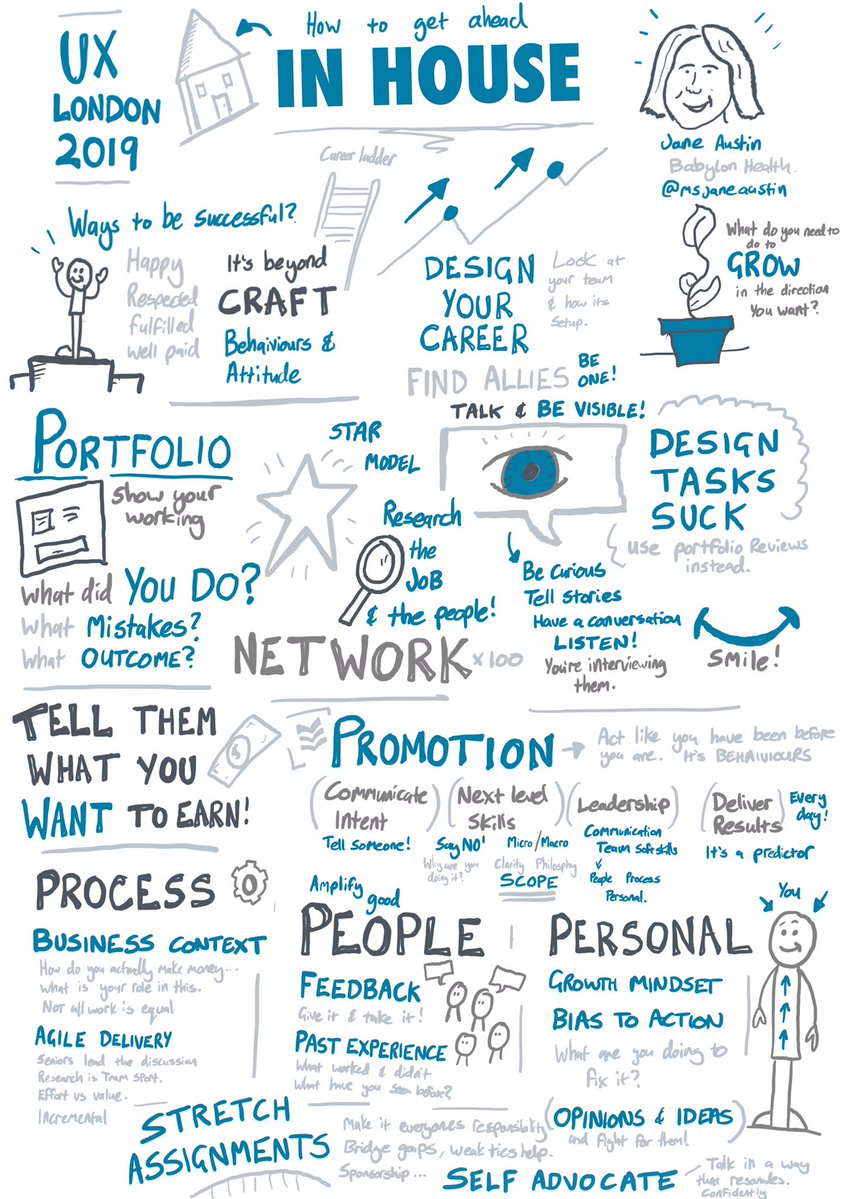 UX
LONDON
2019
How to get ahead
IN HOUSE
Jane Austin
Babylon Health.
@msjaneaustin
Career ladder
Ways to be successful?
Happy
Respected
fulfilled
well paid
It's beyond
CRAFT
Behaiviours &
Attitude
DESIGN
YOUR
CAREER
Look at
your team
& how its
setup.
What do you need to
do to
GROW
in the direction
You want?
FIND ALLIES
BE
ONE!
TALK & BE VISIBLE!
PORTFOLIO
Show your
working
What did YOU DO?
What Mistakes?
What OUTCOME?
STAR
MODEL
Research
the
JOB
& the people!
NETWORK x100
Be Curious
Tell Stories
Have a conversation
LISTEN!
You're interviewing
them.
DESIGN
TASKS
SUCK
Use portfolio Reviews
instead.
Smile!
TELL THEM
WHAT YOU
WANT TO EARN!
PROMOTION
Act like you have been before
you are. It's BEHAVIOURS
(Communicate
Intent)
Tell someone!
(Next level
Skills)
Say NO'
Why are you
doing it?
Micro/Macro
Clarity Philosophy
SCOPE
(Leadership)
Communication
Team Soft skills
People Process
Personal.
(Deliver
Results)
Every
day!
It's a predictor
PROCESS
BUSINESS CONTEXT
How do you actually make money...
What is your role in this.
Not all work is equal
AGILE DELIVERY
Seniors lead the discussion
Research is Team Sport.
Effort vs value.
Incremental
Amplify
good
PEOPLE
FEEDBACK
Give it & take it!
PAST EXPERIENCE
What worked & didn't
What have you seen before?
PERSONAL
GROWTH MINDSET
BIAS TO ACTION
What are you doing to
fix it?
(OPINIONS & IDEAS)
and fight for them!
You
STRETCH
ASSIGNMENTS
Make it everyones responsibility
Bridge gaps, weak ties help.
Sponsorship...
SELF ADVOCATE
Talk in a way
that resonates.
Confidently